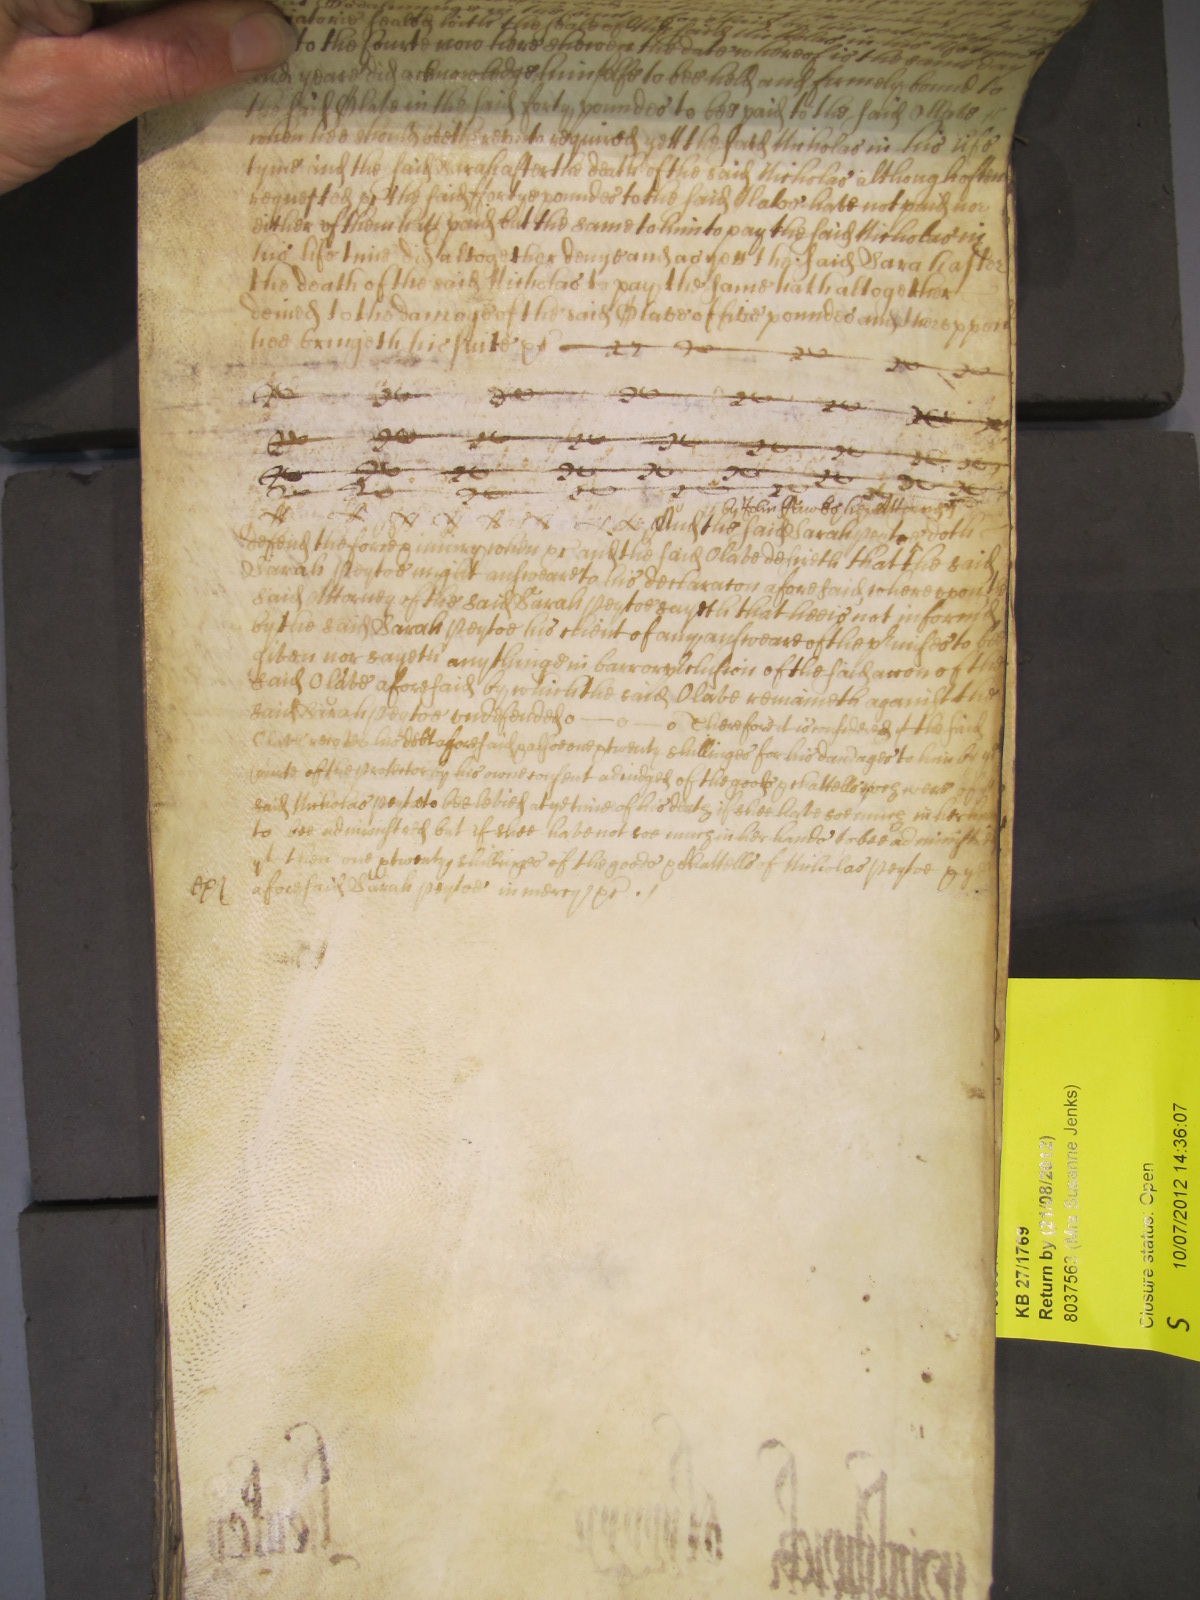 to the Courte now here shewen the date whereof is the same day
and yeare did acknowledge himselfe to bee held and firmely bound to
the said Olave in the said forty poundes to bee paid to the said Olave
when hee should bee thereunto required yett the said Nicholas in his life
tyme and the said Sarah after the death of the said Nicholas although often
requested &c the said fortye poundes to the said Olave have not paid nor
either of them hath paid but the same to him to pay the said Nicholas in
his life time did altogether denye and as yett the said Sarah after
the death of the said Nicholas to pay the same hath altogether
denied to the damage of the said Olave of five poundes and thereuppon
hee bringeth his suite &c
by John her Attorney
And the said Sarah Peytoe doth
defend the force & iniury when &c And the said Olave desireth that the said
Sarah Peytoe might answeare to his declaracon aforesaid whereupon the
said Attorney of the said Sarah Peytoe sayeth that hee is not informed
by the said Sarah Peytoe his client of any answeare of the pmises to bee
Given nor sayeth any thinge in barr or pclusion of the said accon of the
said Olave aforesaid by which the said Olave remaineth against the
said Sarah Peytoe undefended Therefore it is considered yt the said
Olave recover his debt aforesaid & alsoe one & twenty shillinges for his damages to him by ye
Courte of the Protector by his owne consent adiudged of the goods & chattells wch were of ye
said Nicholas Peytoe to bee levied at ye time of his death if shee have soe much in her hands
to bee administred but if shee have not soe much in her hands to bee administred
yt then one & twenty shillinges of the goods & Chattells of Nicholas Peytoe & ye
aforesaid Sarah Peytoe in mercy &c
KB 27/1769
Return by (21/08/2012)
8037563 (Mrs Susanne Jenks)
Closure status: Open
10/07/2012 14:36:07
S